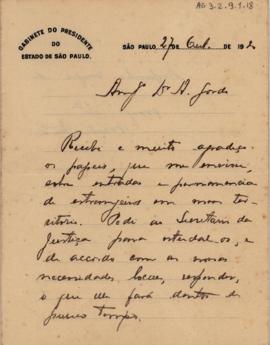 AG 3.2.9.1.18
GABINETE DO PRESIDENTE
DO
ESTADO DE SÃO PAULO.
SÃO PAULO, 27 DE Out. DE 19
Am.º Dr. A. Gordo
Recebi e muito agradeço
os papeis, que me enviou,
sobre entrada e permanencia
de extrangeiros em nosso ter-
ritorio. Pedi ao Secretario da
Justiça para estudal-os, e
de accordo com as nossas
necessidades locaes, responder,
o que elle fará dentro de
pouco tempo.